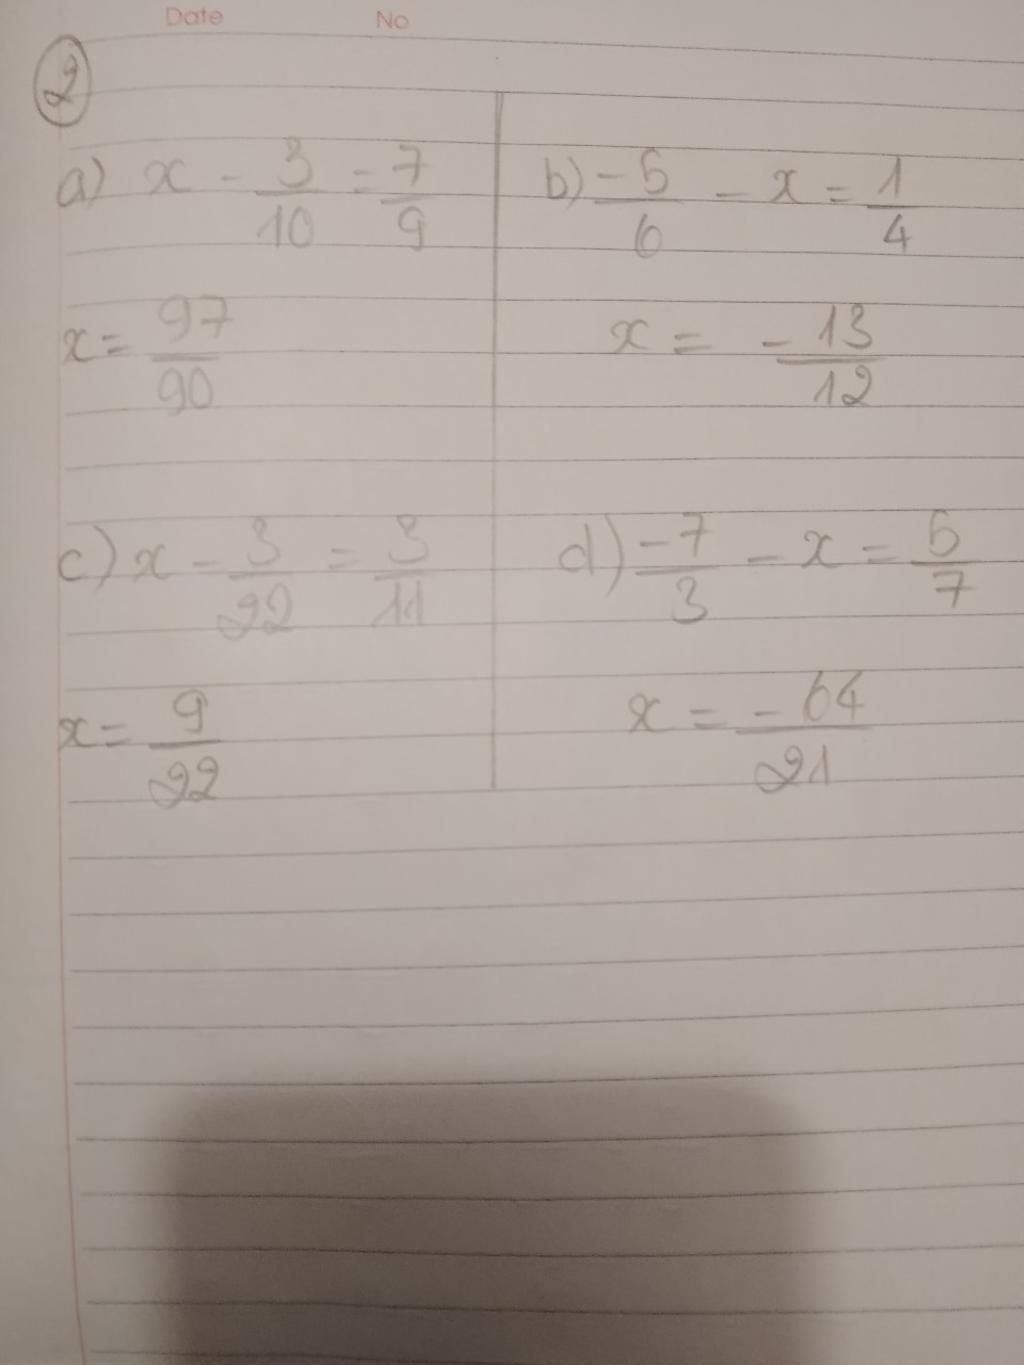 Date No
2
a) x - 3/10 = 7/9
x = 97/90
b) -5/6 - x = 1/4
x = -13/12
c) x - 3/22 = 3/11
x = 9/22
d) -7/3 - x = 5/7
x = -64/21